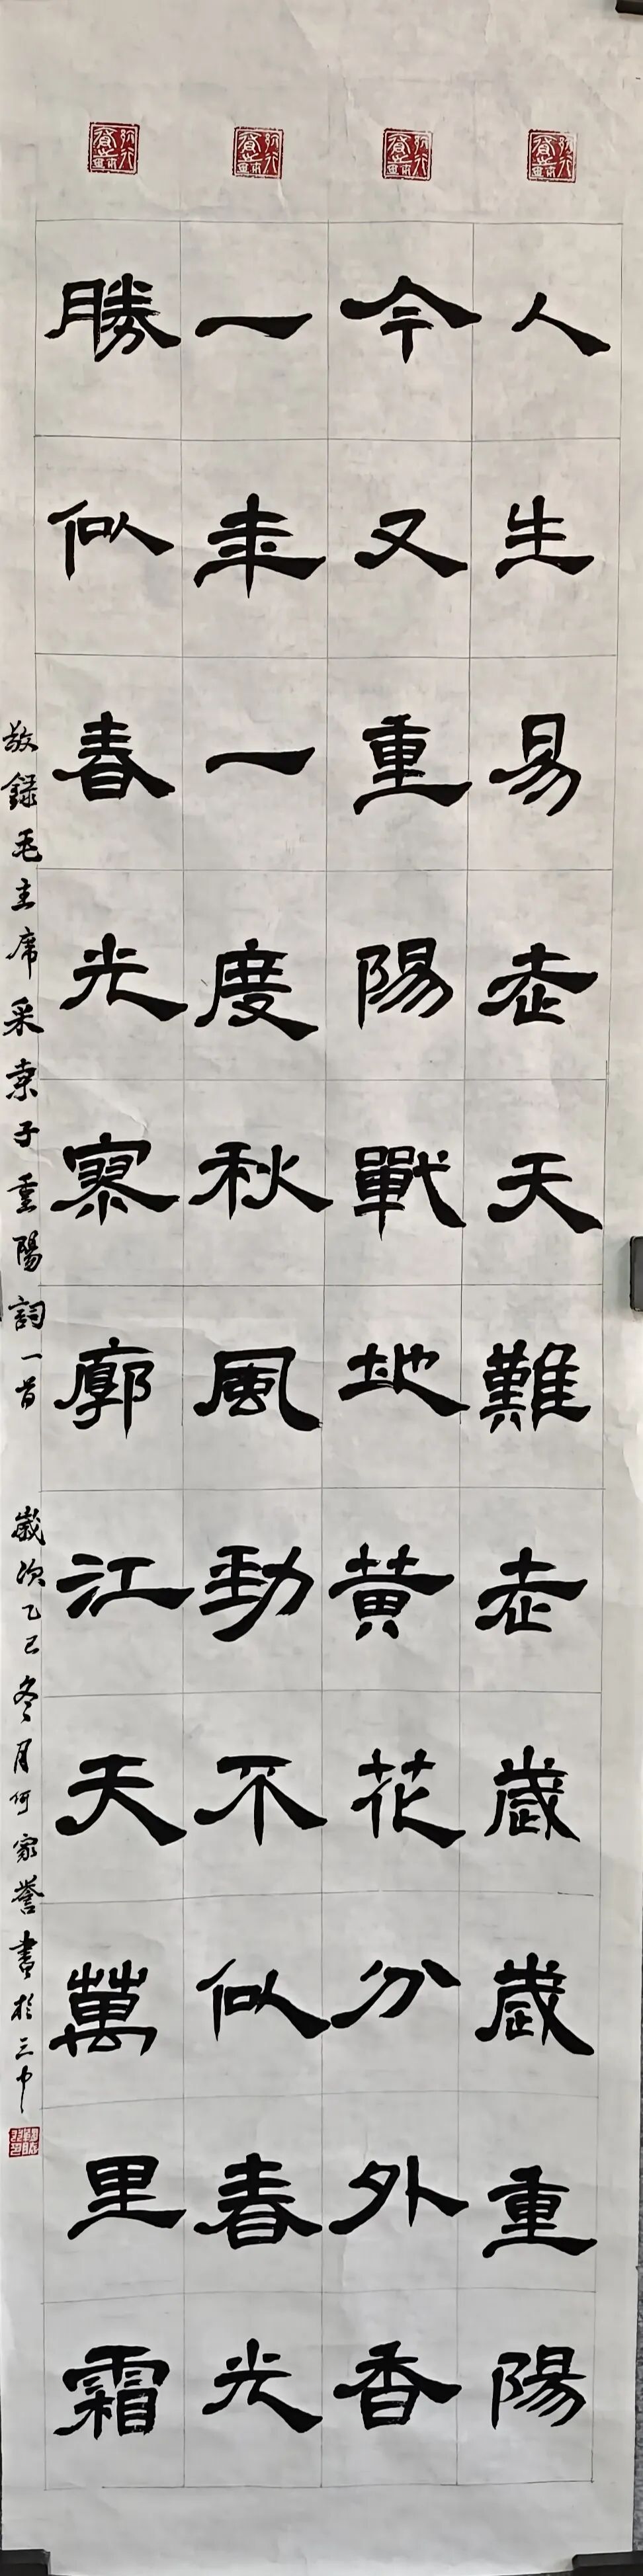 人生易老天難老歲歲重陽
今又重陽戰地黄花分外香
一年一度秋風勁不似春光
勝似春光寥廓江天萬里霜
敬録毛主席采桑子重陽詞一首 歲次乙巳冬月何家誉書於三中